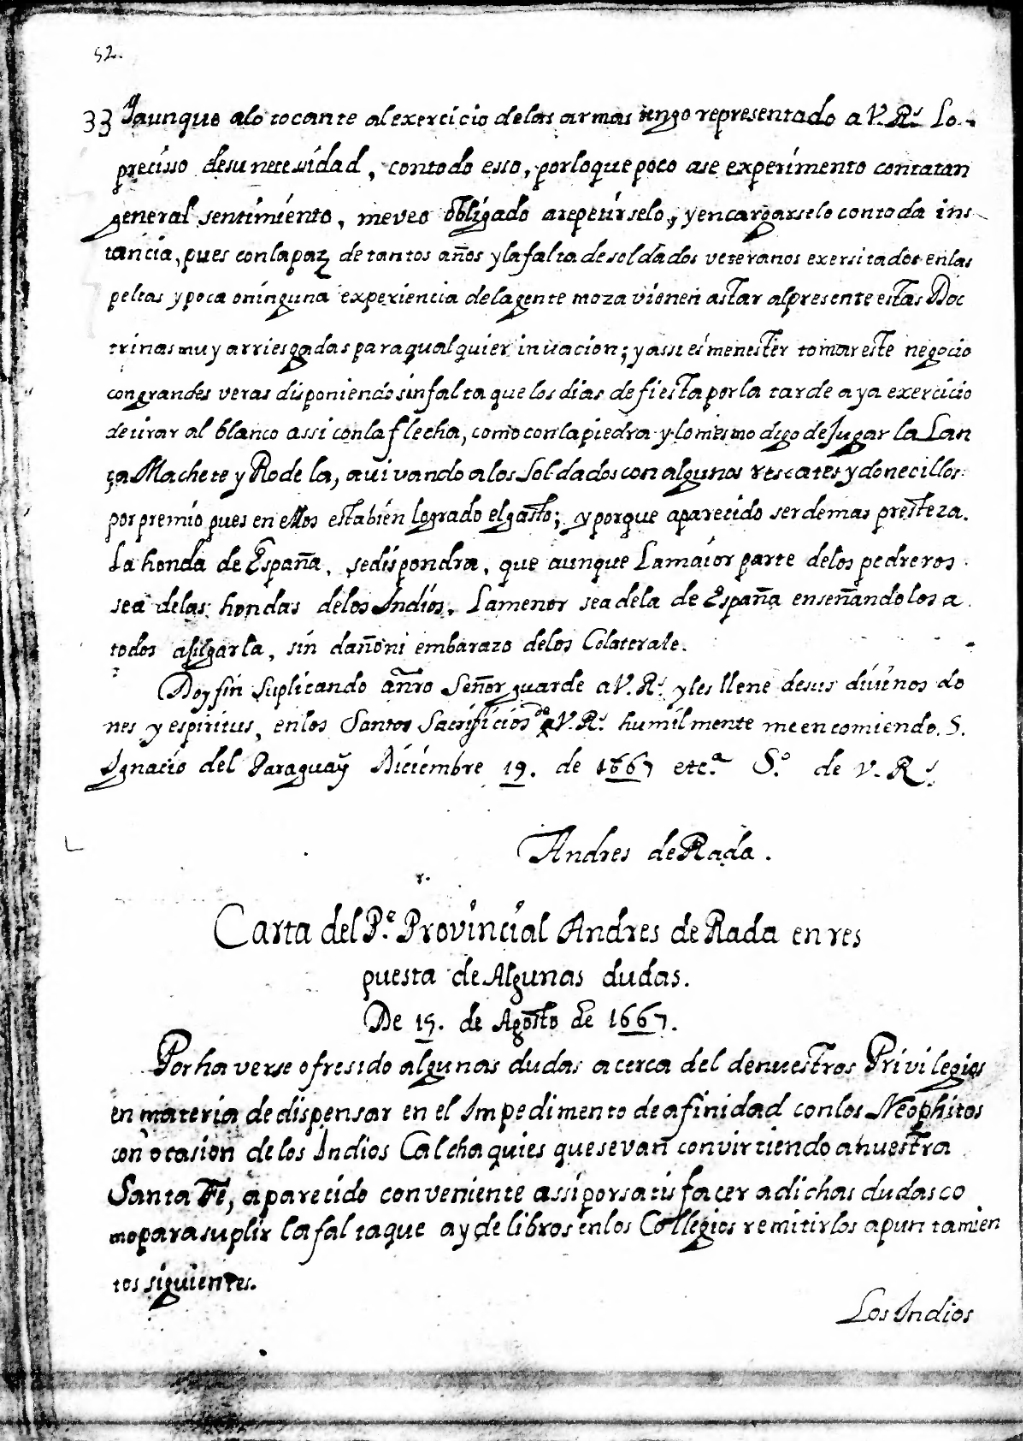 52.
33 Yaunque alo tocante al exercicio delas armas tengo representado a V. Rs. Lo
precisso desu necessidad, contodo esso, porloque poco ase experimento contatan
general sentimiento, meveo obligado arepetirselo, y encargarselo contoda ins
tancia, pues conlapaz de tantos años ylafalta desoldados veteranos exersitados enlas
peleas ypoca oninguna experiencia delagente moza vienen astar alpresente estas Doc
trinas muy arriesgadas paraqualquier invacion; yassi es menester tomar este negocio
congrandes veras disponiendo sinfalta que los dias de fiesta porla tarde aya exercicio
detirar al blanco assi conla flecha, como conlapiedra y lomesmo digo deJugar la Lan
ça Machete y Rodela, avivando alos Soldados con algunos rescates y donecillos
por premio pues en ellos estabien logrado elgasto; y porque aparecido serdemas presteza.
La honda de España, sedispondra, que aunque Lamaior parte delos pedreros
sea delas hondas delos Indios, Lamenor sea dela de España enseñandolos a
todos ajugarla, sin daño ni embarazo delos Colaterale.
Doy fin suplicando a nro Señor guarde a V. Rs. y les llene desus divinos do
nes y espiritus, enlos Santos Sacrificios de V. Rs. humilmente meencomiendo. S.
Ignacio del Paraguay Diciembre 19. de 1667 etc.a S.o de V. Rs.
Andres de Rada.
Carta del P.e Provincial Andres de Rada en res
puesta de Algunas dudas.
De 15. de Agosto de 1667.
Por haverse ofresido algunas dudas acerca del denuestros Privilegios
en materia de dispensar en el Impedimento de afinidad conlos Neophitos
con ocasion de los Indios Calchaquies quesevan convirtiendo anuestra
Santa Fe, aparecido conveniente assi por satisfacer adichas dudas co
mo para suplir la falta que ay de libros enlos Collegios remitirlos apuntamien
tos siguientes.
Los Indios